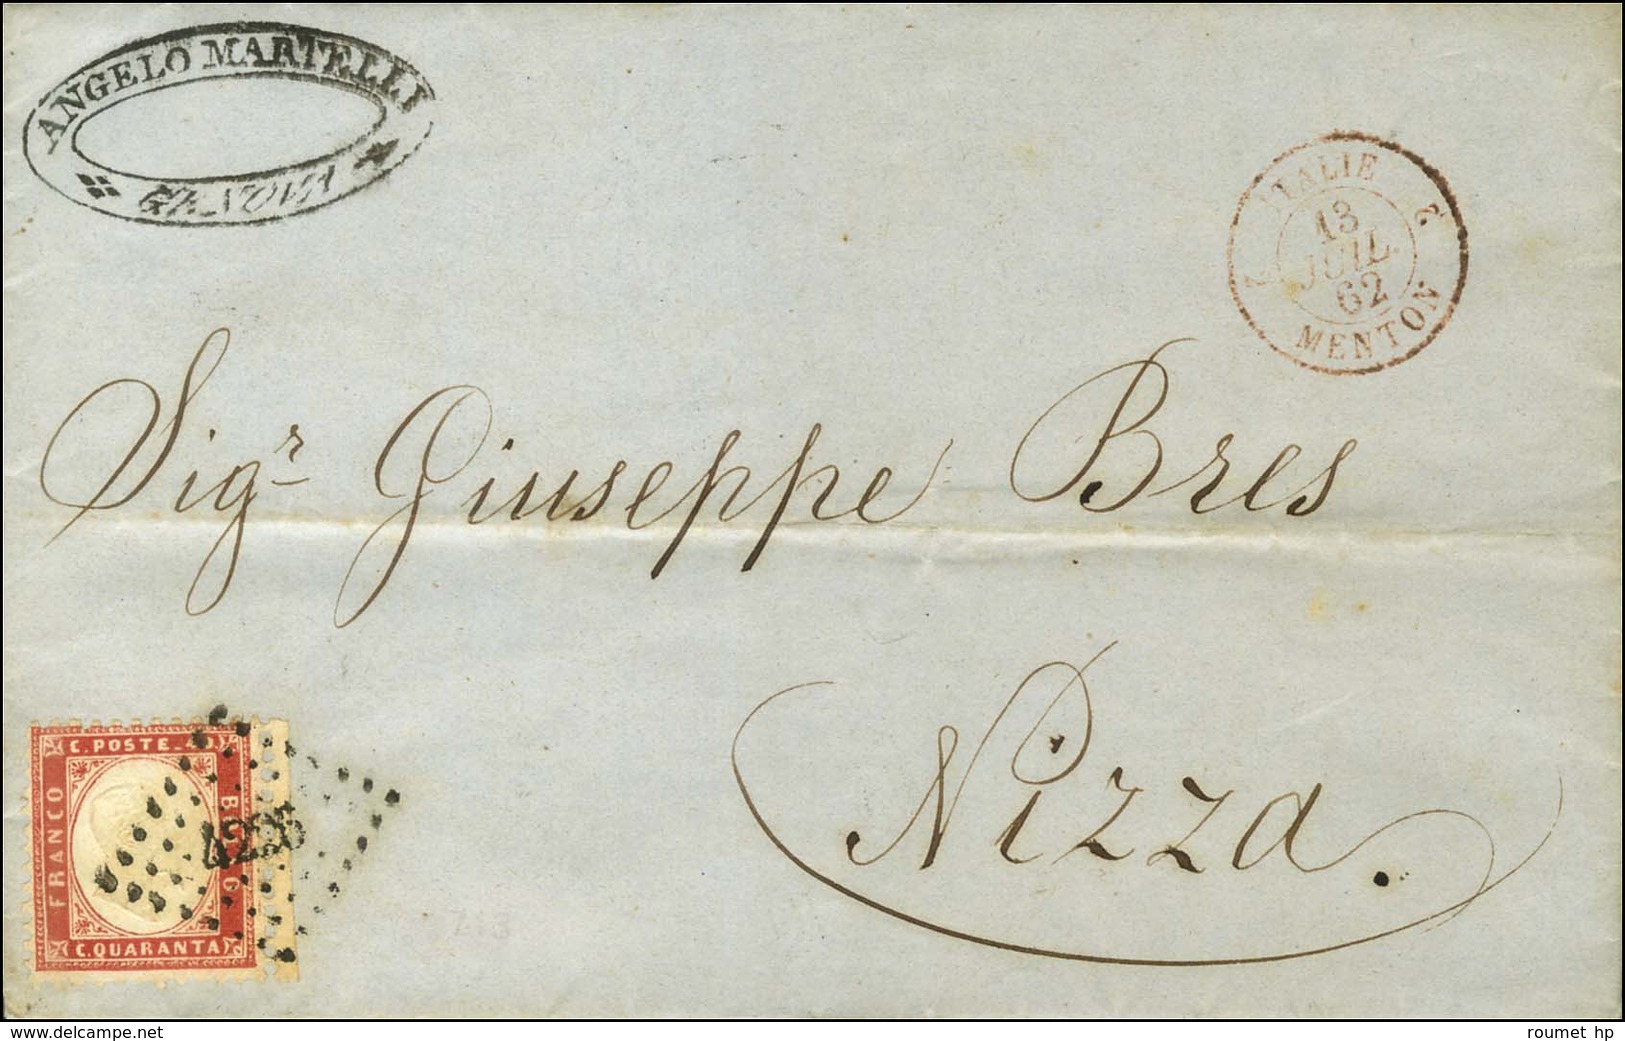 ANGELO MARTELLI
GENOVA
2 ITALIE 2
13
JUIL.
62
MENTON
Sigr Giuseppe Bres
Nizza.
C. POSTE. 40
FRANCO
BOLLO
C. QUARANTA
4226
www.delcampe.net
roumet hp